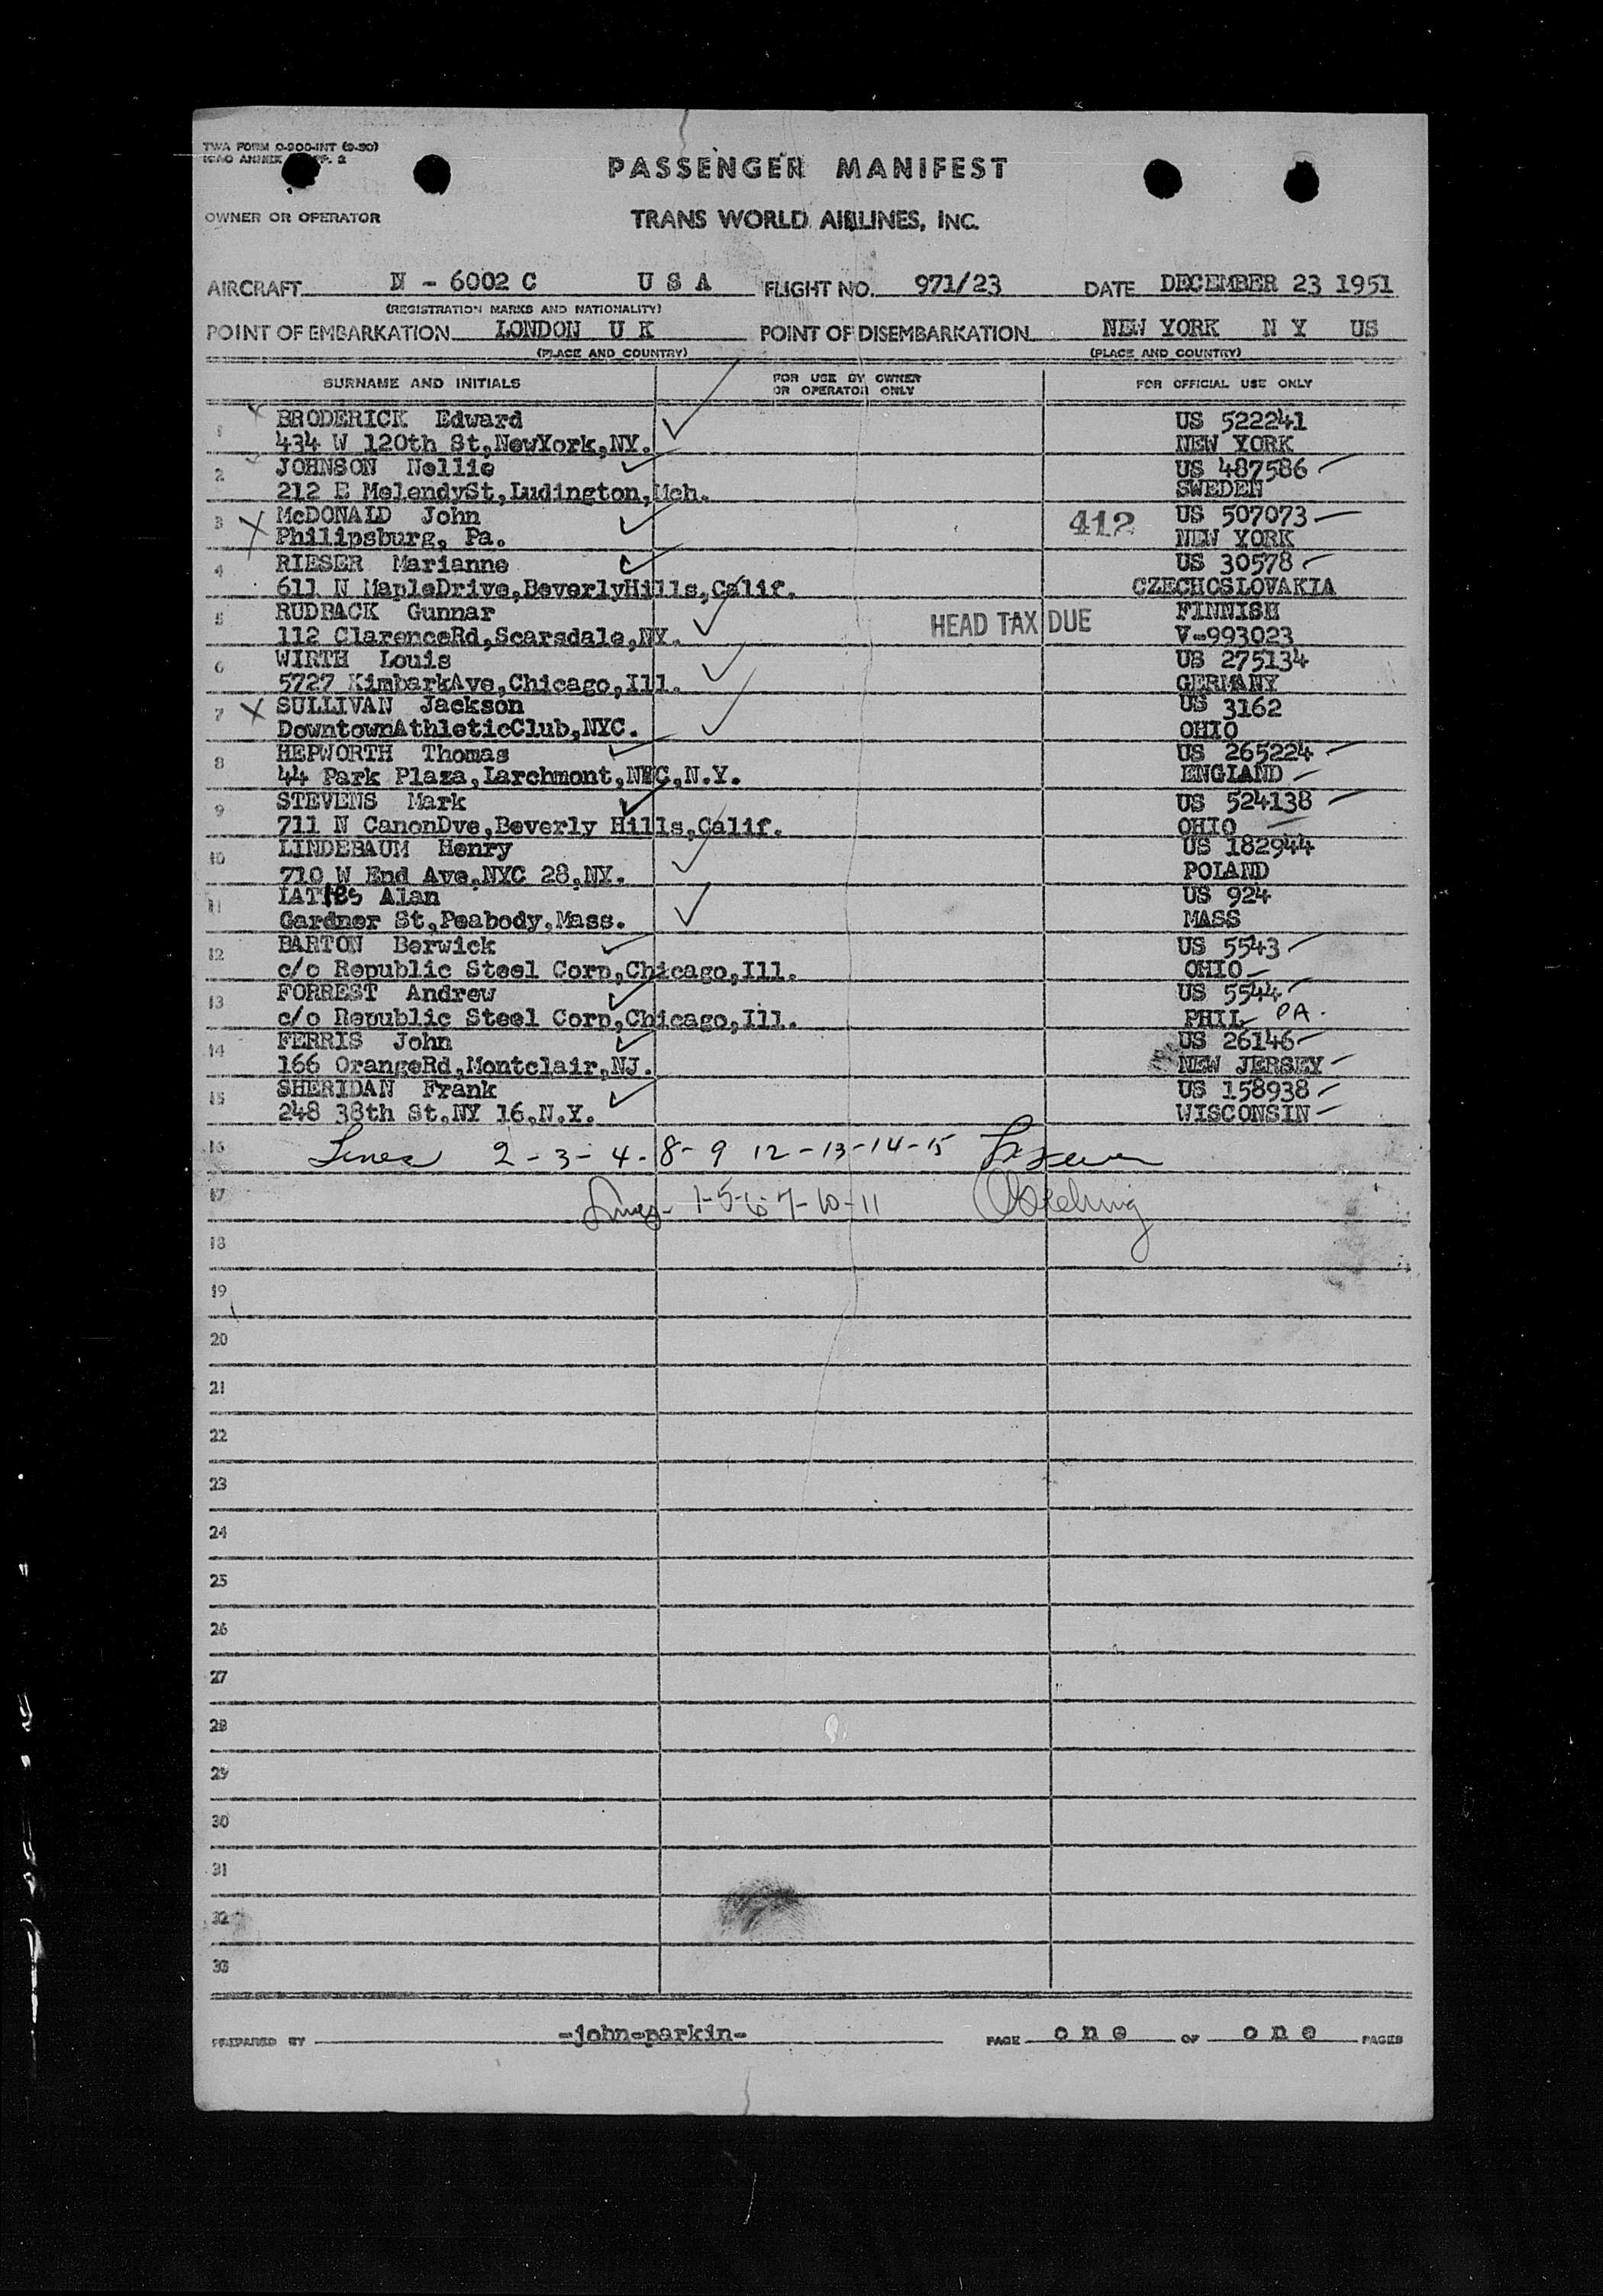 TWA FORM 0-900-INT (9-50)
ICAO ANNEX
PASSENGER MANIFEST
OWNER OR OPERATOR TRANS WORLD AIRLINES, INC.
AIRCRAFT N - 6002 C U S A FLIGHT NO. 971/23 DATE DECEMBER 23 1951
(REGISTRATION MARKS AND NATIONALITY)
POINT OF EMBARKATION LONDON U K POINT OF DISEMBARKATION NEW YORK N Y US
(PLACE AND COUNTRY) (PLACE AND COUNTRY)
SURNAME AND INITIALS FOR USE BY OWNER OR OPERATOR ONLY FOR OFFICIAL USE ONLY
1 BRODERICK Edward US 522241
434 W 120th St,NewYork,NY. NEW YORK
2 JOHNSON Nellie US 487586
212 E MelendySt,Ludington,Mch. SWEDEN
3 McDONALD John 412 US 507073
Philipsburg, Pa. NEW YORK
4 RIESER Marianne US 30578
611 N MapleDrive,BeverlyHills,Calif. CZECHOSLOVAKIA
5 RUDBACK Gunnar HEAD TAX DUE FINNISH
112 ClarenceRd,Scarsdale,NY. V-993023
6 WIRTH Louis US 275134
5727 KimbarkAve,Chicago,Ill. GERMANY
7 SULLIVAN Jackson US 3162
DowntownAthleticClub,NYC. OHIO
8 HEPWORTH Thomas US 265224
44 Park Plaza,Larchmont,NYC,N.Y. ENGLAND
9 STEVENS Mark US 524138
711 N CanonDve,Beverly Hills,Calif. OHIO
10 LINDEBAUM Henry US 182944
710 W End Ave,NYC 28,NY. POLAND
11 Alan US 924
Gardner St,Peabody,Mass. MASS
12 BARTON Berwick US 5543
c/o Republic Steel Corp,Chicago,Ill. OHIO
13 FORREST Andrew US 5544
c/o Republic Steel Corp,Chicago,Ill. PHIL PA.
14 FERRIS John US 26146
166 OrangeRd,Montclair,NJ. NEW JERSEY
15 SHERIDAN Frank US 158938
248 38th St,NY 16,N.Y. WISCONSIN
16 Lines 2-3-4-8-9 12-13-14-15
17 Lines- 1-5-6-7-10-11
18
19
20
21
22
23
24
25
26
27
28
29
30
31
32
33
PREPARED BY -john-parkin- PAGE one OF one PAGES